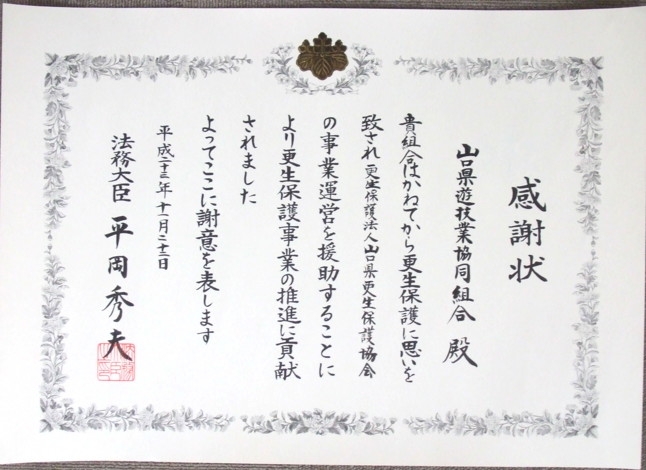 感謝状
山口県遊技業協同組合 殿
貴組合はかねてから更生保護に思いを
致され更生保護法人山口県更生保護協会
の事業運営を援助することに
より更生保護事業の推進に貢献
されました
よってここに謝意を表します
平成二十三年十一月二十二日
法務大臣 平岡秀夫